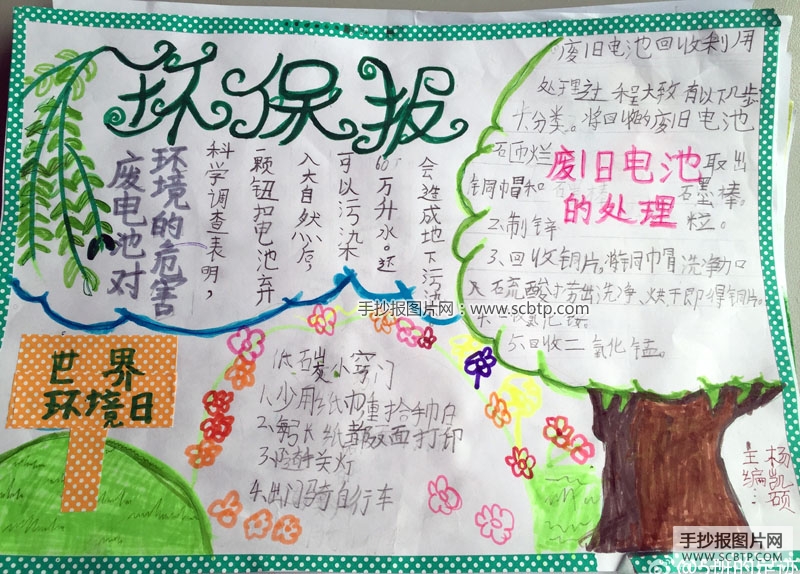 环保报
废旧电池对
环境的危害
科学调查表明,
一颗钮扣电池弃
入大自然后,
可以污染
60万升水。还
会造成地下污染
废旧电池回收利用
处理过程大致有以下几步
大分类。将回收的废旧电池
砸烂
取出
铜帽和
石墨棒。
废旧电池
的处理
2、制锌
粒。
3、回收铜片,将铜帽洗净加
入硫酸
捞出洗净、烘干即得铜片。
5、回收二氧化锰。
手抄报图片网:www.scbtp.com
世界
环境日
低碳小窍门
1、少用纸巾重拾手帕
2、每张纸都双面打印
3、随手关灯
4、出门骑自行车
主编:
杨凯硕
手抄报图片网
WWW.SCBTP.COM